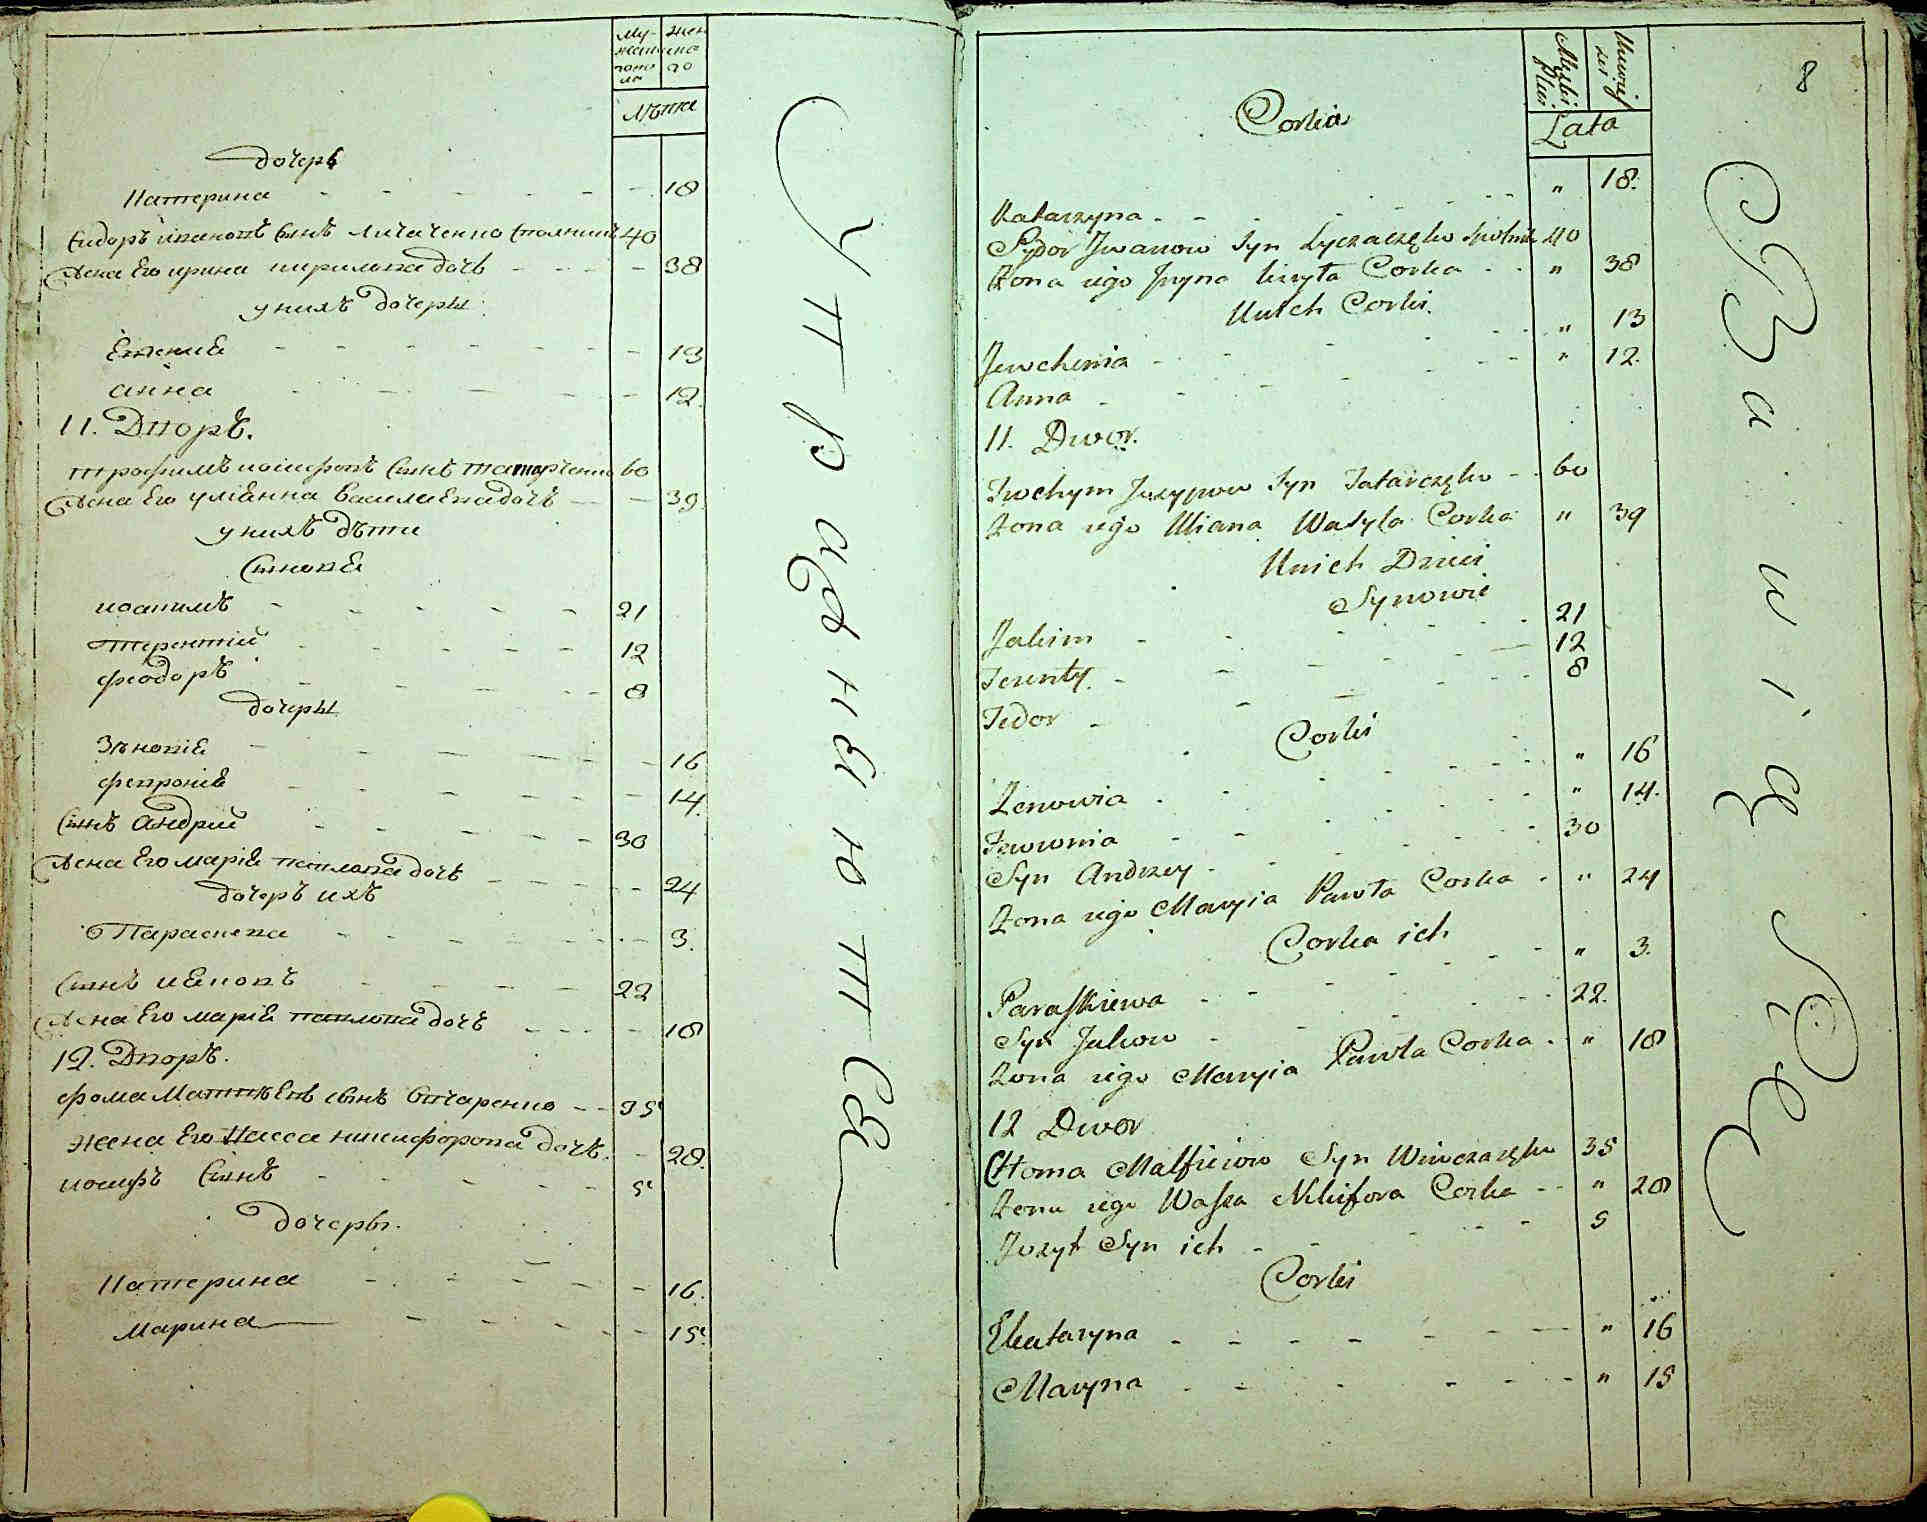 Мужеска пола
Женско
Лѣта
дочерь
Катерина - 18
Сидоръ ивановъ сынъ личаченко столникъ 40
Жена Его ирина кирилова дочь - 38
у нихъ дочеры
Евгения - 13
анна - 12.
11. Дворъ.
трофимъ иосифовъ сынъ татарченко 60
Жена Его улианна василиева дочь - 39.
у нихъ дѣти
Сынове
иоакимъ 21
терентий 12
феодоръ 8
дочеры
Зѣновия - 16
феврония - 14.
Сынъ андрий 30
Жена Его мария павлова дочь - 24
дочеръ ихъ
Параскева - 3.
Сынъ иаковъ 22
Жена Его мария павлова дочь - 18
12. Дворъ.
фома Матвѣевъ сынъ Вовчаренко 35
жена Его Васса никифорова дочь. - 28.
иосифъ Сынъ 5
дочеры.
Катерина - 16.
Марина - 15.
Упражнеются
8
Męskiey Płci
Lata
Corka
Katarzyna - " 18.
Sydor Jwanow Syn Lyczaczęko Spolnik 40
Żona iego Jryna Kiryła Corka " 38
Unich Corki.
Jewchenia " 13
Anna " 12.
11. Dwor.
Trochym Juzypow Syn Tatarczęko 60
Żona iego Uliana Wasyla Corka " 39
Unich Dzieci
Synowie
Jakim 21
Terenty 12
Fedor 8
Corki
Zenowia " 16
Fewronia " 14.
Syn Andrzey 30
Żona iego Maryia Pawła Corka " 24
Corka ich
Paraskiewa " 3.
Syn Jakow 22.
Żona iego Maryia Pawła Corka " 18
12 Dwor
Choma Matfieiow Syn Wiwczaręko 35
Żona iego Wassa Nikifora Corka " 28
Juzyf Syn ich 5
Corki
Ekatazyna " 16
Maryna " 15